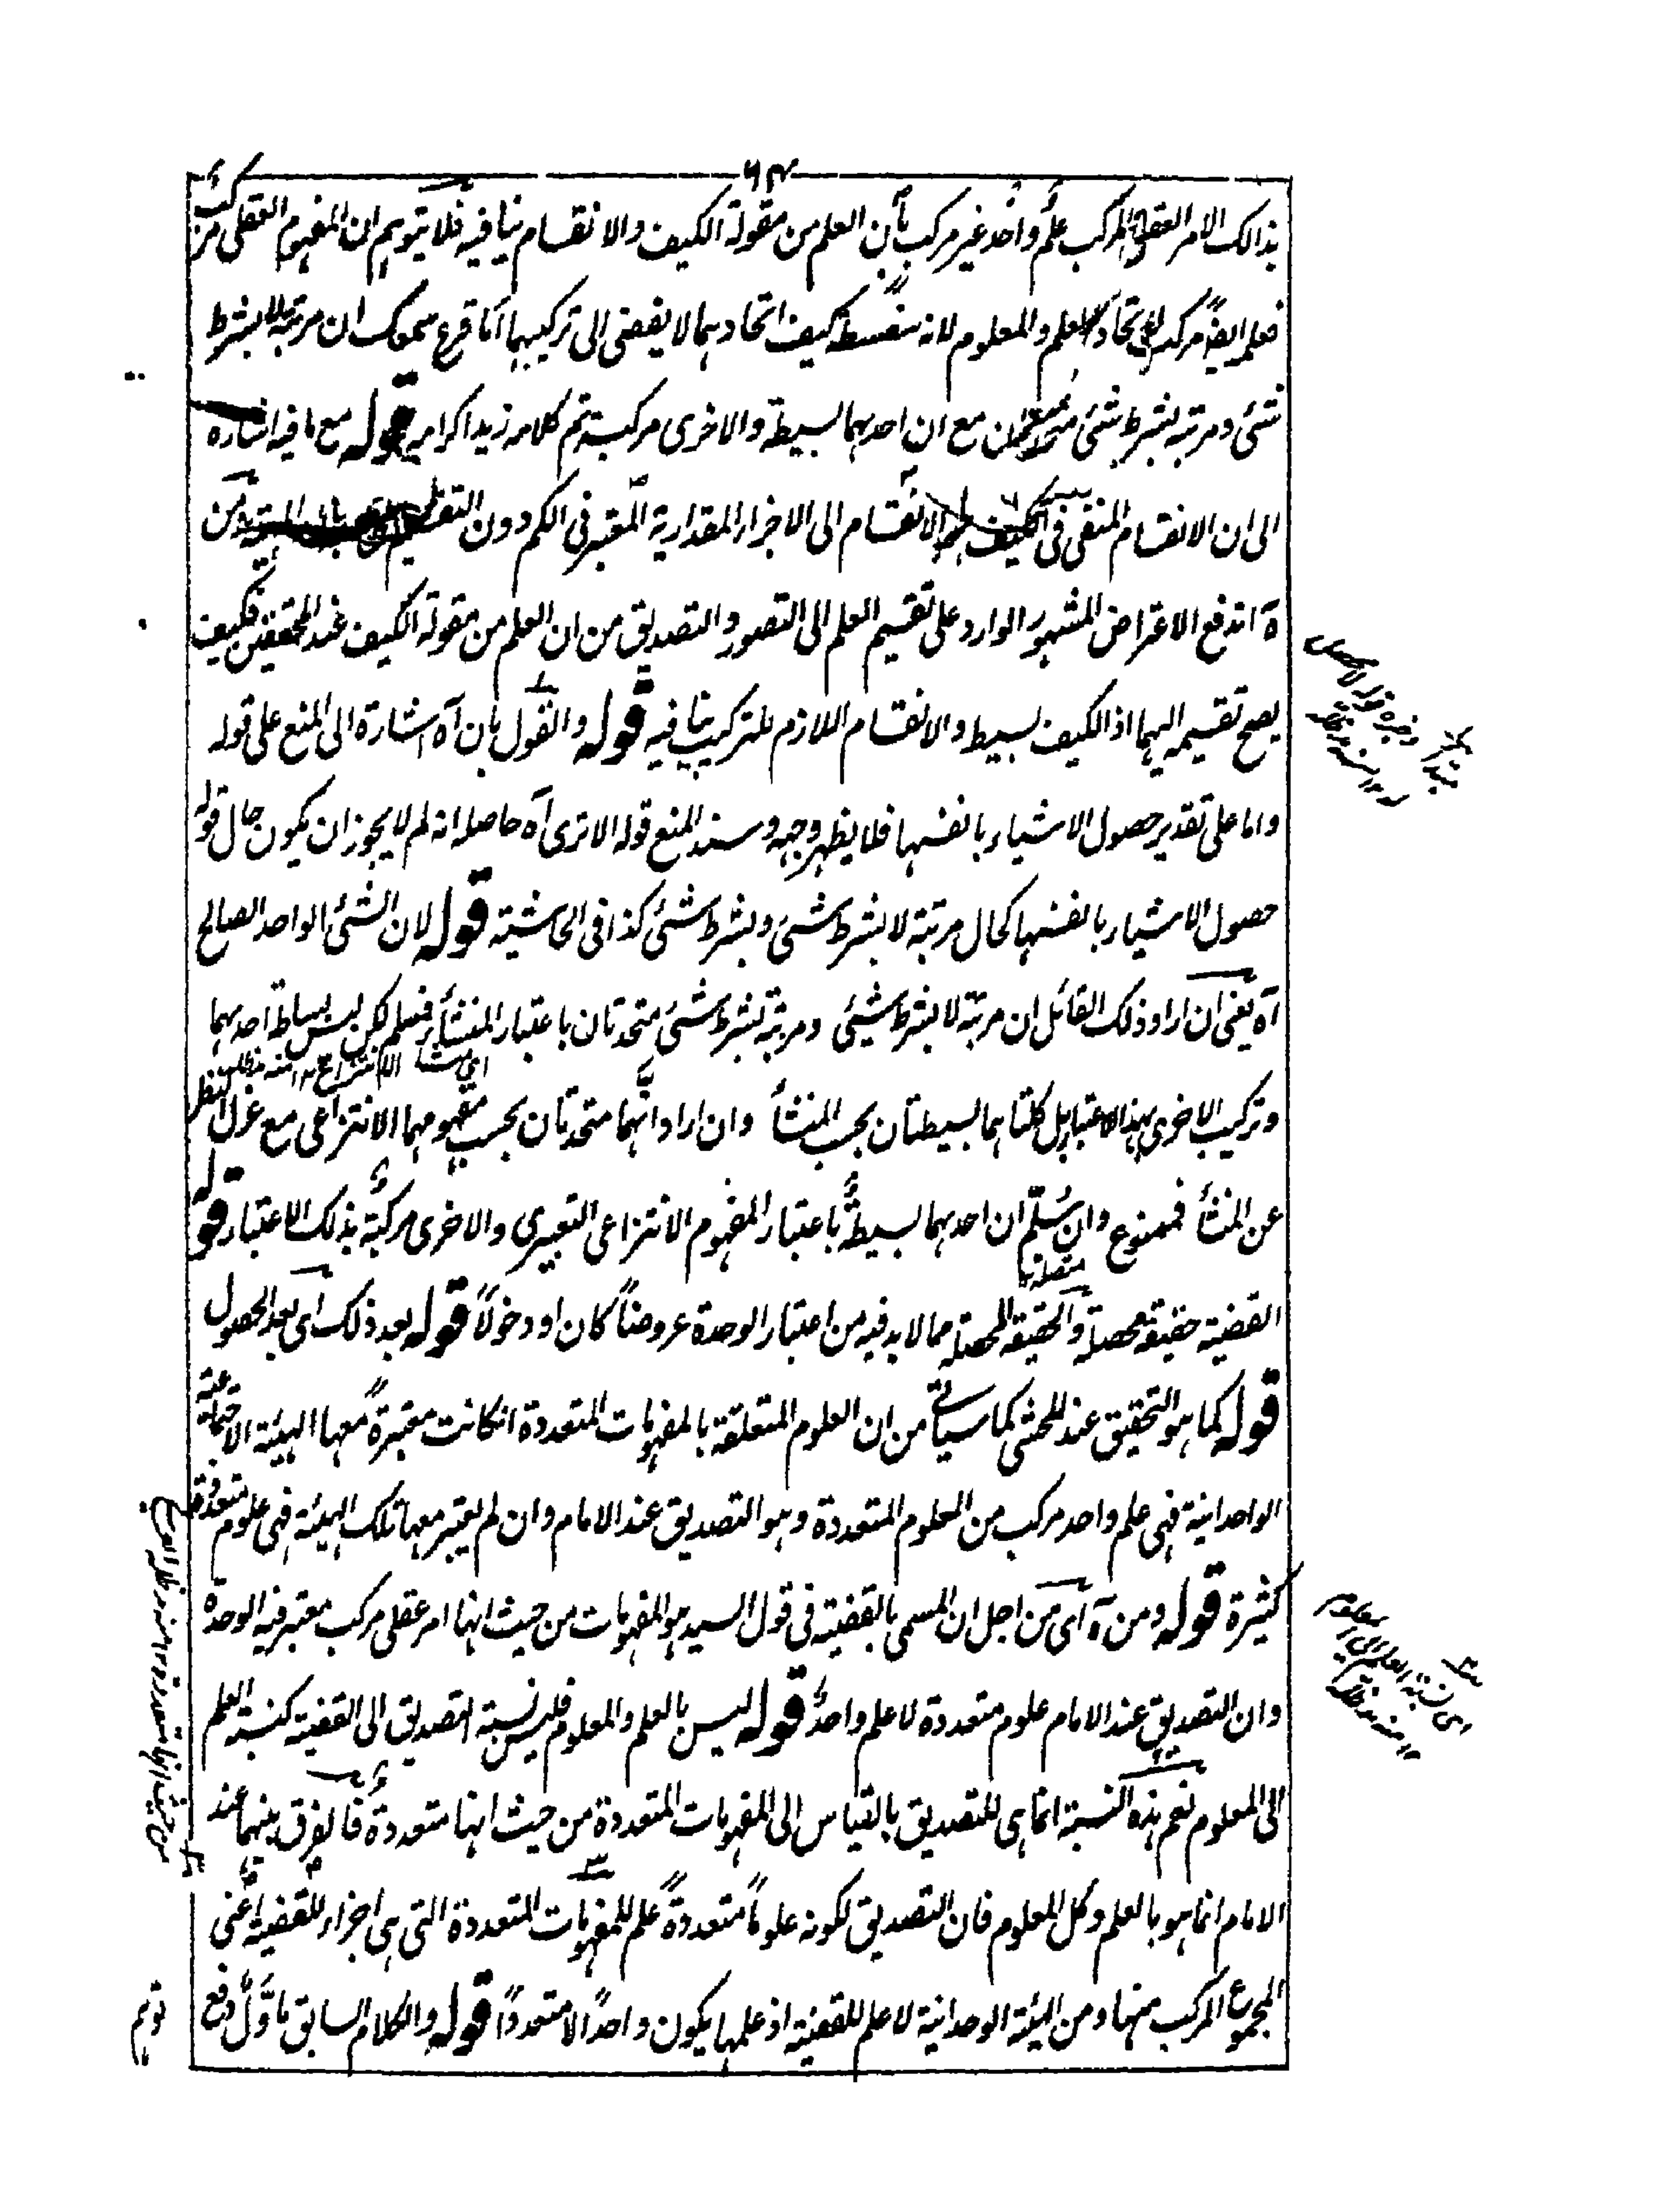 ٦٣
بذالك الامر العقلى المركب علم واحد غير مركب بأن العلم من مقولة الكيف والانقسام ينافيه فلا يتوهم ان المفهوم العقلى مركب
فعلمه ايضاً مركب لاتحاد العلم والمعلوم لانه سفسطة كيف اتحادهما لا يفضى الى تركيبهما اما قرع سمعك ان مرتبة لا بشرط
شئى ومرتبة بشرط شئى متحدتان مع ان احدهما بسيطة والاخرى مركبة تم كلامه زيد اكرامه قوله مع ما فيه اشارة
الى ان الانقسام المنفى فى الكيف هو الانقسام الى الاجزاء المقدارية المعتبر فى الكم دون التقسيم من
ه اندفع الاعتراض المشهور الوارد على تقسيم العلم الى التصور والتصديق من ان العلم من مقولة الكيف عند المحققين فكيف
يصح تقسيمه اليهما اذ الكيف بسيط والانقسام اللازم للتركيب ينافيه قوله والقول بان آه اشارة الى المنع على قوله
واما على تقدير حصول الاشياء بانفسها فلا يظهر وجهه وسند المنع قوله الا ترى آه حاصله انه لم لا يجوز ان يكون حال قوله
حصول الاشياء بانفسها كحال مرتبة لا بشرط شئى وبشرط شئى كذا فى الحاشية قوله لان الشئى الواحد الصالح
آه يعنى ان اراد ذلك القائل ان مرتبة لا بشرط شيئى ومرتبة بشرط شئى متحدتان باعتبار المنشأ فنسلم لكن ليس بساطة احدهما
اى منشأ الانتزاع ١٢ منه مدظله
وتركيب الاخرى بهذا الاعتبار بل كلتاهما بسيطتان بحسب المنشأ وان اراد انهما متحدتان بحسب مفهومهما الانتزاعى مع عزل النظر
عن المنشأ فممنوع وان سلم ان احدهما بسيطة باعتبار المفهوم الانتزاعى التعبيرى والاخرى مركبة بذلك الاعتبار قوله
القضية حقيقة محصلة والحقيقة المحصلة مما لا بد فيه من اعتبار الوحدة عروضاً كان او دخولاً قوله بعد ذلك اى بعد الحصول
قوله كما هو التحقيق عند المحشى كما سيأتى من ان العلوم المتعلقة بالمفهومات المتعددة انكانت معتبرة معها الهيئة الاجتماعية
الواحدانية فهى علم واحد مركب من العلوم المتعددة وهو التصديق عند الامام وان لم يعتبر معها تلك الهيئة فهى علوم متعددة
كثيرة قوله ومن آه اى من اجل ان المسمى بالقضية فى قول السيد هو المفهومات من حيث انها امر عقلى مركب معتبر فيه الوحدة
وان التصديق عند الامام علوم متعددة لا علم واحد قوله ليس بالعلم والمعلوم فليس نسبة التصديق الى القضية كنسبة العلم
الى المعلوم نعم هذه النسبة انما هى للتصديق بالقياس الى المفهومات المتعددة من حيث انها متعددة فالفرق بينهما عند
الامام انما هو بالعلم وكل المعلوم فان التصديق لكونه علوماً متعددة علم للمفهومات المتعددة التى هى اجزاء للقضية اعنى
المجموع المركب منها ومن الهيئة الوحدانية لا علم للقضية اذ علمها يكون واحداً لا متعدداً قوله والكلام السابق ما وّل دفع
توهم